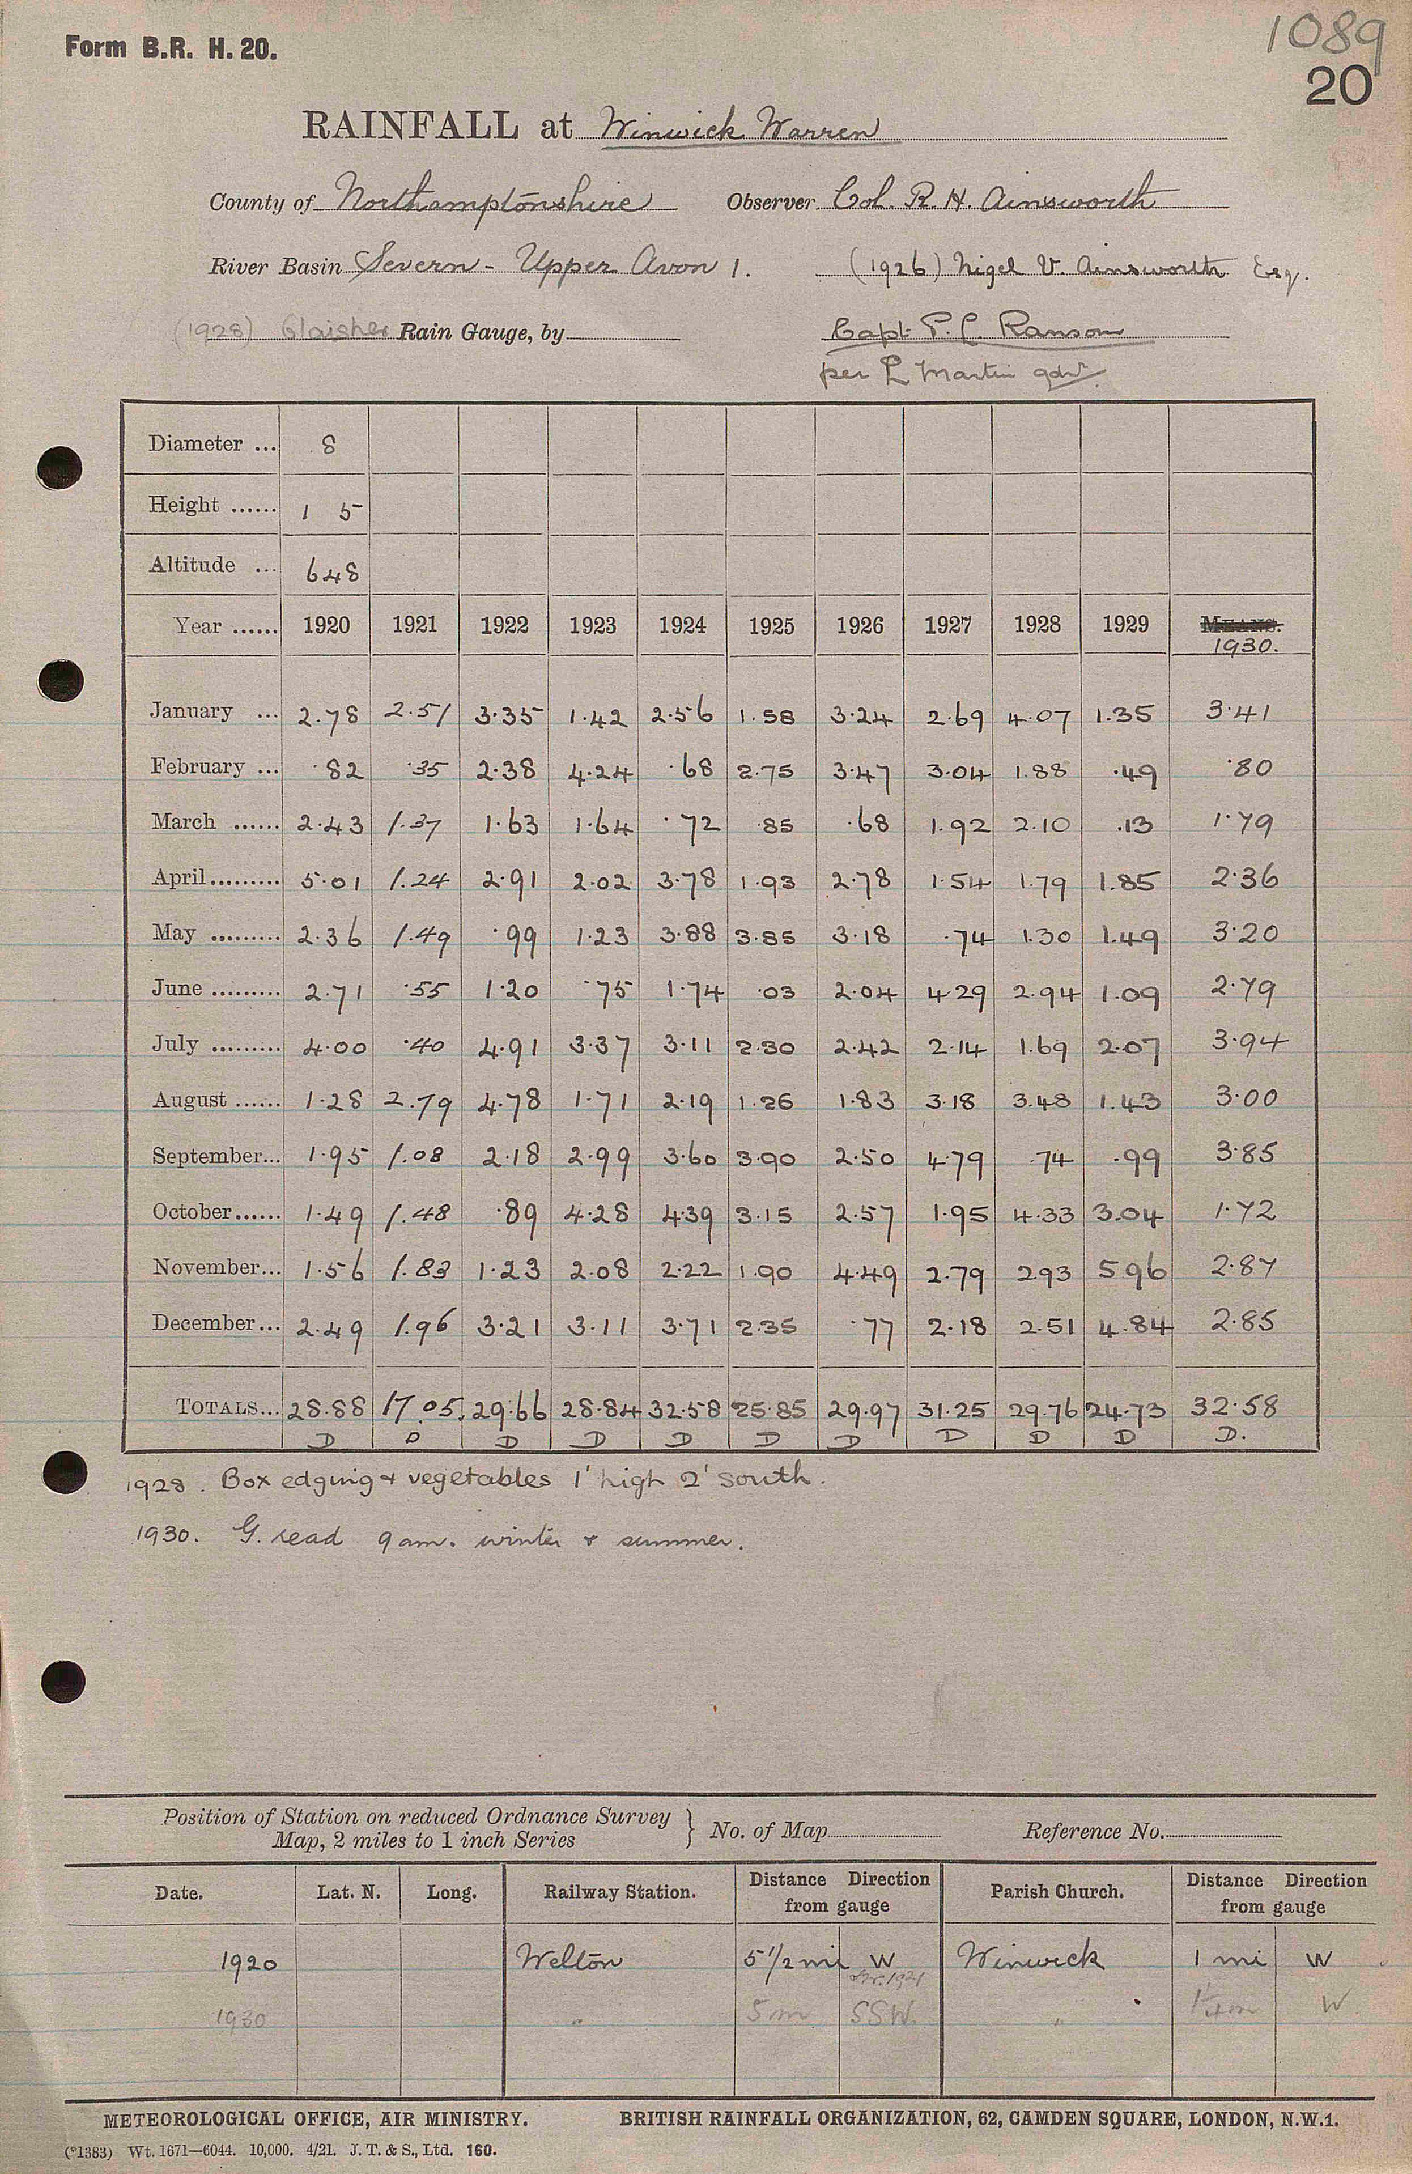 1089
Form B.R. H. 20.
20
RAINFALL at Winwick Warren
County of Northamptonshire Observer Col. R. H. Ainsworth
River Basin Severn - Upper Avon 1. (1926) Nigel V. Ainsworth Esq.
(1928) Glaisher Rain Gauge, by
Capt. P. L. Ransom
per L Martin gdnr.
Diameter ... 8
Height ...... 1 5
Altitude ... 648
Year ...... 1920 1921 1922 1923 1924 1925 1926 1927 1928 1929 MEANS.
1930.
January ... 2.78 2.51 3.35 1.42 2.56 1.58 3.24 2.69 4.07 1.35 3.41
February ... .82 .35 2.38 4.24 .68 2.75 3.47 3.04 1.88 .49 .80
March ...... 2.43 1.37 1.63 1.64 .72 .85 .68 1.92 2.10 .13 1.79
April......... 5.01 1.24 2.91 2.02 3.78 1.93 2.78 1.54 1.79 1.85 2.36
May ......... 2.36 1.49 .99 1.23 3.88 3.85 3.18 .74 1.30 1.49 3.20
June ......... 2.71 .55 1.20 .75 1.74 .03 2.04 4.29 2.94 1.09 2.79
July ......... 4.00 .40 4.91 3.37 3.11 2.30 2.42 2.14 1.69 2.07 3.94
August ...... 1.28 2.79 4.78 1.71 2.19 1.26 1.83 3.18 3.48 1.43 3.00
September... 1.95 1.08 2.18 2.99 3.60 3.90 2.50 4.79 .74 .99 3.85
October...... 1.49 1.48 .89 4.28 4.39 3.15 2.57 1.95 4.33 3.04 1.72
November... 1.56 1.83 1.23 2.08 2.22 1.90 4.49 2.79 2.93 5.96 2.87
December... 2.49 1.96 3.21 3.11 3.71 2.35 .77 2.18 2.51 4.84 2.85
TOTALS... 28.88 17.05 29.66 28.84 32.58 25.85 29.97 31.25 29.76 24.73 32.58
D D D D D D D D D D D.
1928. Box edging & vegetables 1' high 2' south.
1930. G. read 9am. winter & summer.
Position of Station on reduced Ordnance Survey
Map, 2 miles to 1 inch Series } No. of Map Reference No.
Date. Lat. N. Long. Railway Station. Distance Direction from gauge Parish Church. Distance Direction from gauge
1920 Welton 5 1/2 mi W Winwick 1 mi W
1930 " 5m SSW. " 1 1/4 m W
METEOROLOGICAL OFFICE, AIR MINISTRY. BRITISH RAINFALL ORGANIZATION, 62, CAMDEN SQUARE, LONDON, N.W.1.
(*1383) Wt. 1671—6044. 10,000. 4/21. J. T. & S., Ltd. 160.